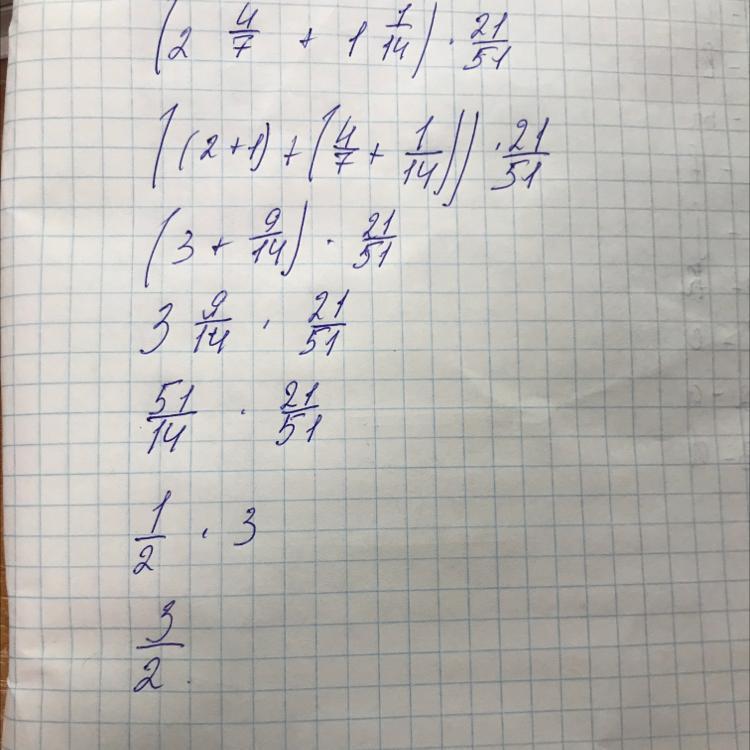 (2 4/7 + 1 1/14) · 21/51
((2+1) + (4/7 + 1/14)) · 21/51
(3 + 9/14) · 21/51
3 9/14 · 21/51
51/14 · 21/51
1/2 · 3
3/2